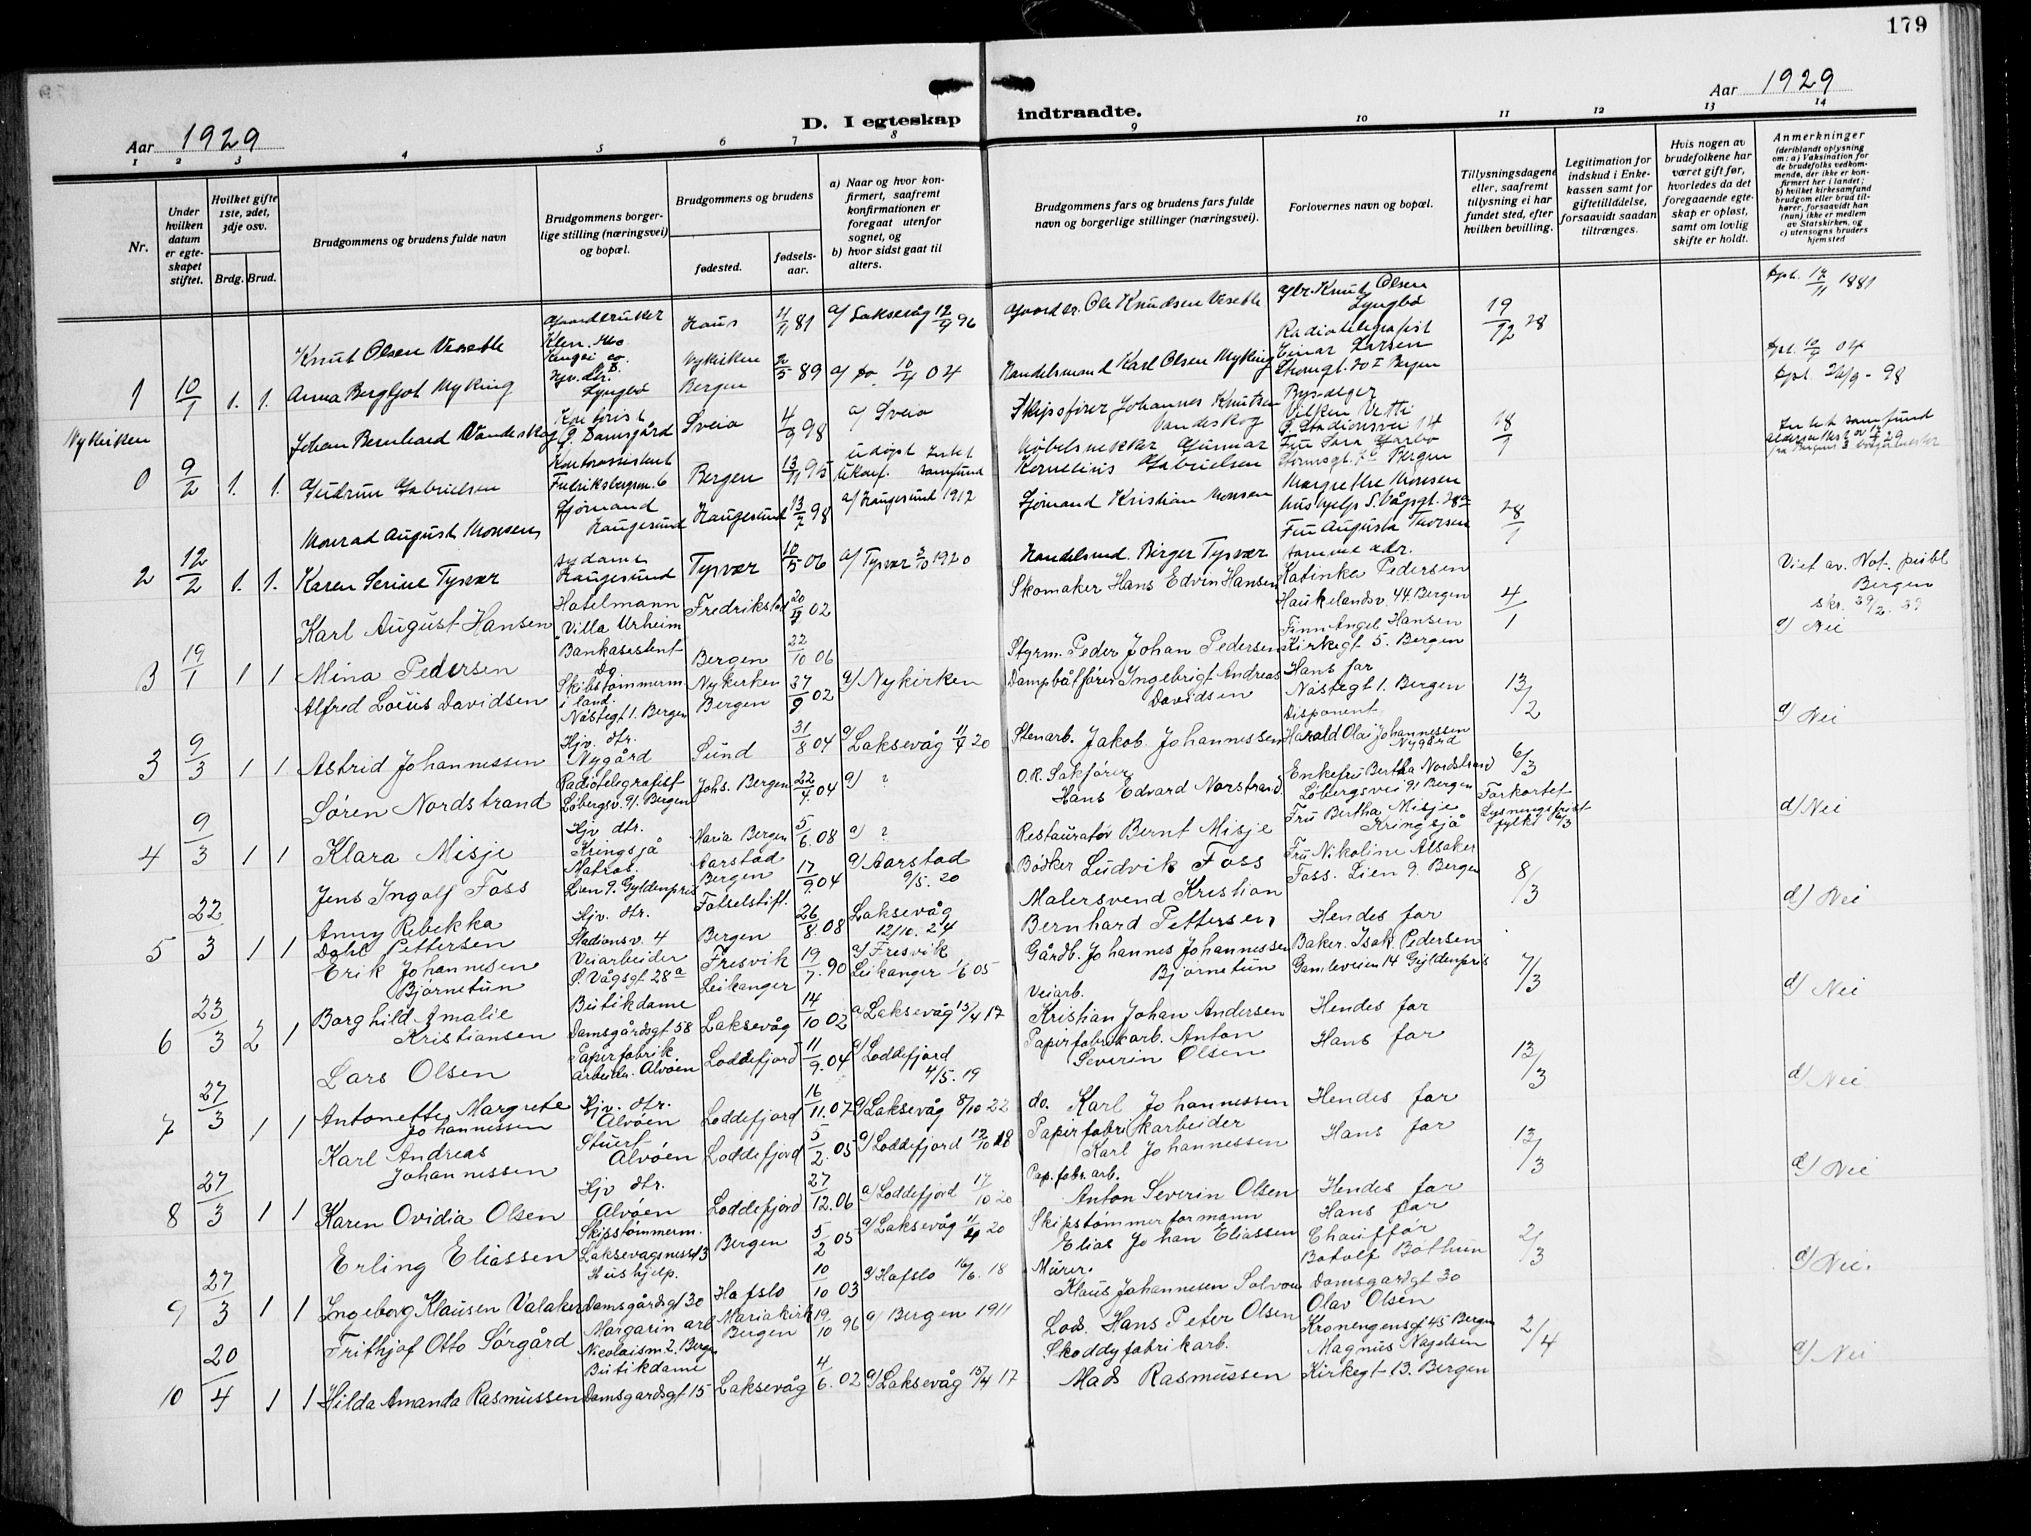 179
Aar 1929
D. I egteskap
indtraadte.
Aar 1929
1 2 3 4 5 6 7 8 9 10 11 12 13 14
Nr.
Under hvilken datum er egteskapet stiftet.
Hvilket gifte 1ste, 2det, 3dje osv.
Brdg. Brud.
Brudgommens og brudens fulde navn
Brudgommens borgerlige stilling (næringsvei) og bopæl.
Brudgommens og brudens
fødested.
fødselsaar.
a) Naar og hvor konfirmert, saafremt konfirmationen er foregaat utenfor sognet, og
b) hvor sidst gaat til alters.
Brudgommens fars og brudens fars fulde navn og borgerlige stillinger (næringsvei).
Forlovernes navn og bopæl.
Tillysningsdagene eller, saafremt tillysning ei har fundet sted, efter hvilken bevilling.
Legitimation for indskud i Enkekassen samt for giftetilddelse, forsaavidt saadan tiltrænges.
Hvis nogen av brudefolkene har været gift før, hvorledes da det foregaaende egteskap er opløst, samt om lovlig skifte er holdt.
Anmerkninger (deriblandt oplysning om: a) Vaksination for de brudefolks vedkommende, der ikke er konfirmert her i landet; b) hvilket kirkesamfund brudgom eller brud tilhører, forsaavidt han (hun) ikke er medlem av Statskirken, og c) utensogns bruders hjemsted
Knut Olsen Veseble Gaardbruker Haus 81 a/ Laksevåg 12/9 96 Gaardbr. Ole Knudsen Veseble Gbr. Knut Olsen Lyngbø 19/12 28
1 10/1 1. 1. Anna Bergljot Myking Hjv. dtr. Lyngbø Nykirken Bergen 89 a/ do. 04 Handelsmand Karl Olsen Myking Radiotelegrafist Einar Larsen
Nykirken
Johan Bernhard Vandeskog Kontorist Damsgård Sveio 4/9 98 a/ Sveio Skipsfører Johannes Knutsen Vandeskog Vilken Vetti
0 9/2 1. 1. Gudrun Gabrielsen Kontorassistent Bergen 13/11 95 Møbelsnekker Gunnar Kornelius Gabrielsen Bergen 18/1
Monrad August Monsen Sjømand Haugesund Haugesund 13/2 98 a/ Haugesund 1912 Sjømand Kristian Monsen Margrethe Monsen
2 12/2 1. 1. Karen Serine Tysvær sydame Haugesund Tysvær 10/5 06 a/ Tysvær 1920 Handelsmd. Birger Tysvær Fru Augusta Thorsen samme adr. 28/1
Karl August Hansen Hotelmann "Villa Urheim" Fredrikstad 20/4 02 Skomaker Hans Edvin Hansen Katinka Pedersen Haukelandsv. 44. Bergen 4/1 Viet av Not. publ. Bergen
3 19/1 1 1 Mina Pedersen Bankasistent Bergen 22/10 06 Styrm. Peder Johan Pedersen Finn Angel Hansen Kirkegt 5. Bergen d) Nei
Alfred Loius Davidsen Skibstømmerm i land. Nøstegt 1. Bergen Nykirken Bergen 27/9 02 a) Nykirken Dampbåtfører Ingebrigt Andreas Davidsen Hans far Nøstegt 1. Bergen 13/2
3 9/3 1 1 Astrid Johannessen Hjv. dtr. Nygård Sund 31/8 04 a) Laksevåg 11/4 20 Stenarb. Jakob Johannessen Disponent Harald Olai Johannessen Nygård d) Nei
Søren Nordstrand Radiotelegrafist Løbergsv. 91. Bergen Johs. Bergen 22/4 04 a) ? O.R. Sakfører Hans Edvard Norstrand Enkefru Bertha Nordstrand Løbergsvei 91 Bergen 6/3
4 9/3 1 1 Klara Misje Hjv dtr. Kringsjå Maria Bergen 5/6 08 a) ? Restauratør Bernt Misje Fru Bertha Misje Kringsjå Forkortet Lysningsfrist fylk. d) Nei
Jens Ingolf Foss Matros Lien 9. Gyldenpris Aarstad Bergen 17/9 04 a) Aarstad 9/5. 20 Bødker Ludvik Foss Fru Nikoline Alsaker Foss. Lien 9. Bergen 8/3
5 22/3 1 1 Anny Rebekka Dahl Pettersen Hjv. dtr. Stadionsv. 4 Fødselstift. Bergen 26/8 08 Laksevåg 12/10. 24 Malersvend Kristian Bernhard Pettersen Hendes far d) Nei
Erik Johannesen Bjørnetun Veiarbeider S. Vågsgt. 28a Fresvik Leikanger 19/7. 90 a) Fresvik Leikanger 1/6 05 Gårdb. Johannes Johannessen Bjørnetun Baker. Isak Pedersen Gamleveien 14 Gyldenpris 7/3
6 23/3 2 1 Borghild Amalie Kristiansen Butikdame Damsgårdsgt 58 Laksevåg 14/10 02 a) Laksevåg 13/4 17 Veiarb. Kristian Johan Andersen Hendes far d) Nei
Lars Olsen Papirfabrik. arbeider. Alvøen Loddefjord 11/9. 04 a) Loddefjord 4/5. 19 Papirfabrikarb. Anton Severin Olsen Hans far 13/3
7 27/3 1 1 Antonette Margrete Johannessen Hjv. dtr. Alvøen Loddefjord 16/11. 07 a) Laksevåg 8/10 22 do. Karl Johannessen Hendes far d) Nei
Karl Andreas Johannessen Stuert Alvøen Loddefjord 5/2. 05 a) Loddefjord 12/10 18 Papirfabrikarbeider Karl Johannessen Hans far 13/3
8 27/3 1 1 Karen Ovidia Olsen Hjv dtr. Alvøen Loddefjord 27/12. 06 a) Loddefjord 17/10 20 Pap. fabr. arb. Anton Severin Olsen Hendes far d) Nei
Erling Eliassen Skipstømmerm. Laksevågsneset 3 Bergen 5/2 05 a) Laksevåg 11/4 20 Skipstømmerformann Elias Johan Eliassen Hans far 2/3
9 27/3 1 1 Ingeborg Klausen Valaker Hushjelp. Damsgårdsgt 30 Hafslo 10/10 03 a) Hafslo 16/6. 18 Murer. Klaus Johannesen Solvon Chauffør Botolf Bøthun Damsgårdgt 30 d) Nei.
Frithjof Otto Sørgård Margarin arb Nicolaism. 2. Bergen Mariakirk Bergen 19/10 96 a) Bergen 1911 Lods. Hans Peter Olsen Olav Olsen Kronengensgt 45 Bergen 2/4
10 20/4 1 1 Hilda Amanda Rasmussen Butikdame Damsgårdsgt 15 Laksevåg 4/6. 02 a) Laksevåg 15/4 17 Skoddyfabrikarb. Mads Rasmussen Magnus Nagelsen Kirkegt 13. Bergen d) Nei